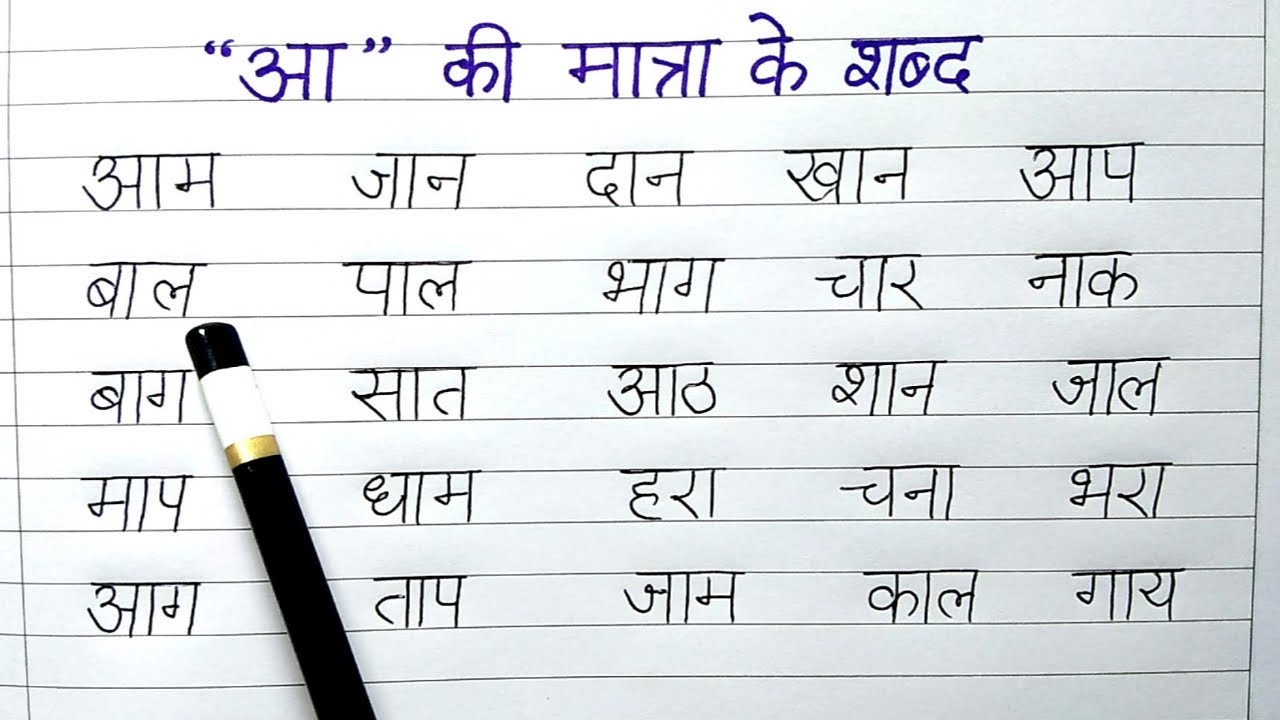 “आ” की मात्रा के शब्द
आम जान दान खान आप
बाल पाल भाग चार नाक
बाग सात आठ शान जाल
माप धाम हरा चना भरा
आग ताप जाम काल गाय